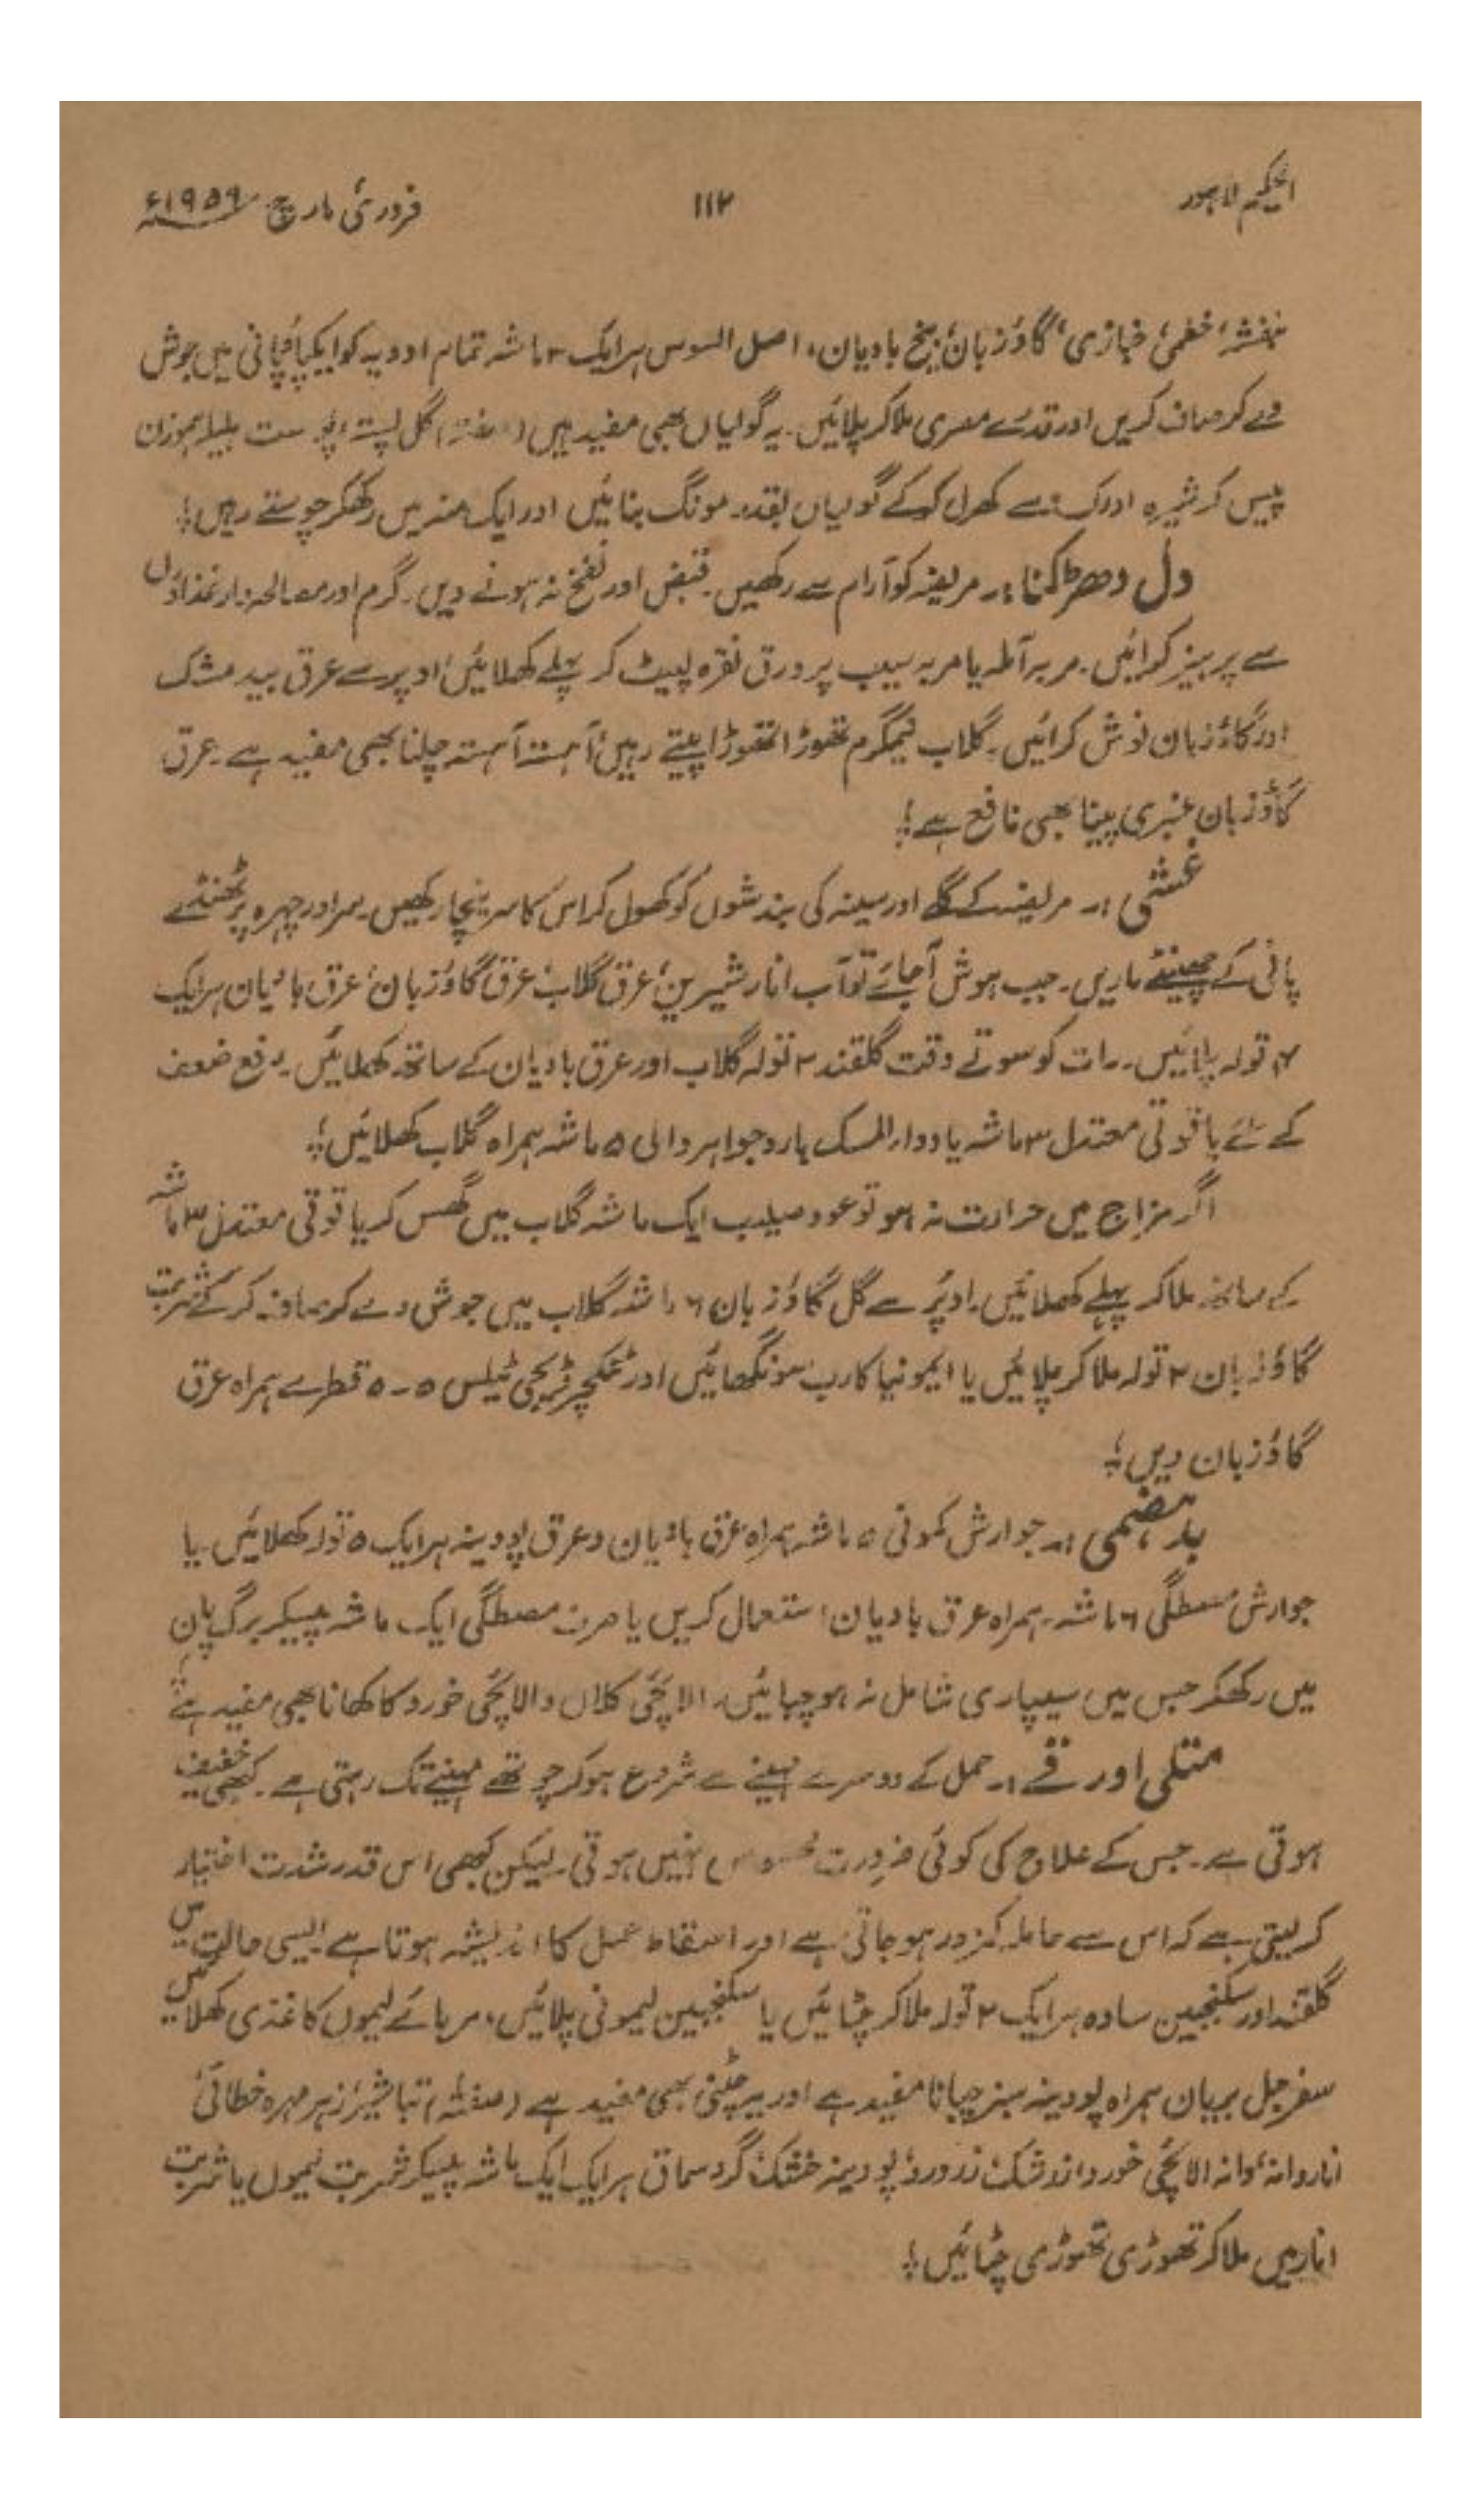 الحکیم لاہور
۱۱۲
فروری مارچ ۱۹۵۹ء
بنفشہ، خطمی، خبازی، گاؤزبان، بیخ بادیان، اصل السوس ہر ایک ۳ ماشہ تمام ادویہ کو ایک پاؤ پانی میں جوش
دے کر صاف کریں اور قدرے مصری ملا کر پلائیں۔ یہ گولیاں بھی مفید ہیں گل پستہ، پوست بلیلہ ہموزن
پیس کر شیرہ ادرک سے کھرل کرکے گولیاں بقدر مونگ بنائیں اور ایک منہ میں رکھکر چوستے رہیں؛
دل دھڑکنا:۔ مریضہ کو آرام سے رکھیں۔ قبض اور نفخ نہ ہونے دیں۔ گرم اور مصالحہ دار غذاؤں
سے پرہیز کرائیں۔ مربہ آملہ یا مربہ سیب پر ورق نقرہ لپیٹ کر پہلے کھلائیں اوپر سے عرق بید مشک
اور گاؤزبان نوش کرائیں۔ گلاب نیمگرم تھوڑا تھوڑا پیتے رہیں، آہستہ آہستہ چلنا بھی مفید ہے۔ عرق
گاؤزبان عنبری پینا بھی نافع ہے؛
غشی:۔ مریضہ کے گلے اور سینہ کی بندشوں کو کھول کر اس کا سر نیچا رکھیں۔ سر اور چہرہ پر ٹھنڈے
پانی کے چھینٹے ماریں۔ جب ہوش آجائے تو آب انار شیریں، عرق گلاب، عرق گاؤزبان، عرق بادیان ہر ایک
۴ تولہ پلائیں۔ رات کو سوتے وقت گلقند ۲ تولہ گلاب اور عرق بادیان کے ساتھ کھلائیں۔ دفع ضعف
کے لئے یاقوتی معتدل ۳ ماشہ یا دوارالمسک بارد جواہر والی ۵ ماشہ ہمراہ گلاب کھلائیں؛
اگر مزاج میں حرارت نہ ہو تو عود صلیب ایک ماشہ گلاب میں گھس کر یاقوتی معتدل ۳ ماشہ
کے ساتھ ملا کر پہلے کھلائیں۔ اوپر سے گل گاؤزبان ۶ ماشہ گلاب میں جوش دے کر صاف کرکے شربت
گاؤزبان ۲ تولہ ملا کر پلائیں یا ایمونیا کارب سونگھائیں اور ٹنکچر ڈیجی ٹیلس ۵۔۵ قطرے ہمراہ عرق
گاؤزبان دیں؛
بدہضمی:۔ جوارش کمونی ۵ ماشہ ہمراہ عرق بادیان و عرق پودینہ ہر ایک ۵ تولہ کھلائیں۔ یا
جوارش مصطگی ۶ ماشہ ہمراہ عرق بادیان استعمال کریں یا صرف مصطگی ایک ماشہ پیسکر برگ پان
میں رکھکر جس میں سیپاری شامل نہ ہو چبائیں۔ الائچی کلاں و الائچی خورد کا کھانا بھی مفید ہے؛
متلی اور قے:۔ حمل کے دوسرے مہینے سے شروع ہوکر چوتھے مہینے تک رہتی ہے۔ کبھی خفیف
ہوتی ہے۔ جس کے علاج کی کوئی ضرورت محسوس نہیں ہوتی۔ لیکن کبھی اس قدر شدت اختیار
کرلیتی ہے کہ اس سے حاملہ کمزور ہوجاتی ہے اور اسقاط حمل کا اندیشہ ہوتا ہے ایسی حالت میں
گلقند اور سکنجبین سادہ ہر ایک ۲ تولہ ملا کر چٹائیں یا سکنجبین لیمونی پلائیں، مربائے لیموں کاغذی کھلائیں
سفرجل بریان ہمراہ پودینہ سبز چبانا مفید ہے اور یہ چٹنی بھی مفید ہے تباشیر، زہر مہرہ خطائی،
اناردانہ، دانہ الائچی خورد، زرورد، پودینہ خشک، گرد سماق ہر ایک ایک ماشہ پیسکر شربت لیموں یا شربت
انار میں ملا کر تھوڑی تھوڑی چٹائیں؛